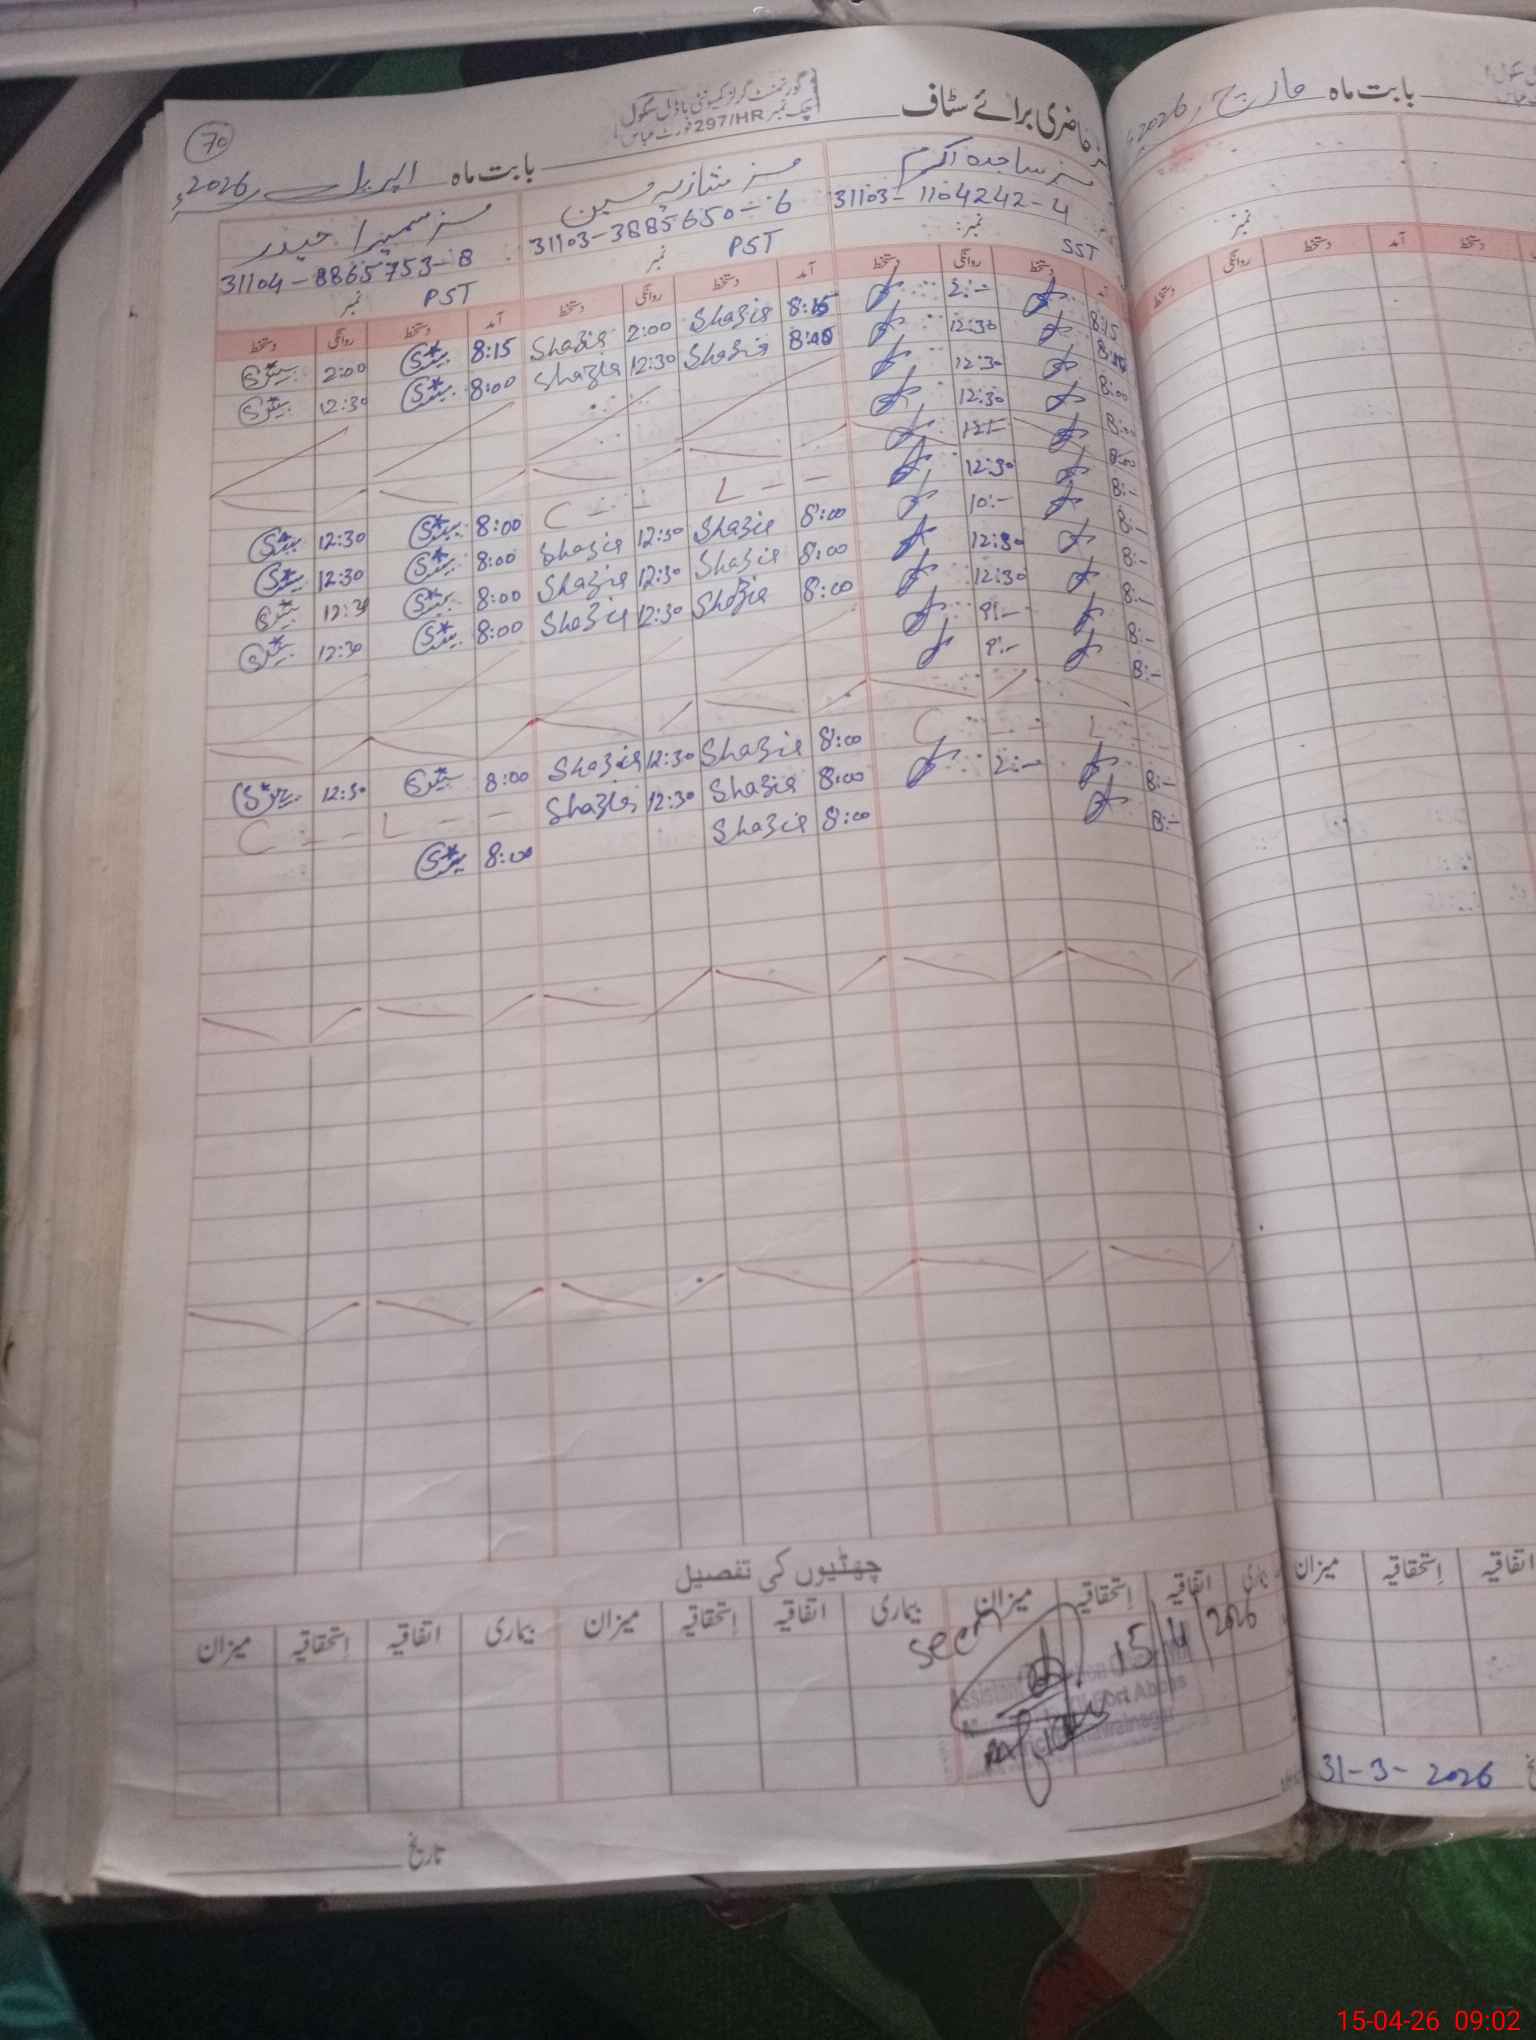 رجسٹر حاضری برائے سٹاف
گورنمنٹ گرلز کمیونٹی ماڈل سکول
چک نمبر 297/HR فورٹ عباس
بابت ماہ اپریل 2026ء
70
مسز ساجدہ اکرم
31103-1104242-4
نمبر: SST
مسز شازیہ حسین
31103-3885650-6
نمبر PST
مسز سمیرا حیدر
31104-8865753-8
نمبر PST
آمد دستخط روانگی دستخط آمد دستخط روانگی دستخط آمد دستخط روانگی دستخط
8:15 2:- 8:15 Shazia 2:00 Shazia 8:15 2:00
12:30 8:00 Shazia 12:30 Shazia 8:00 12:30
8:00 12:30
8:00 12:30
8:00
8:- 12:30 C - - L - - 8:00 12:30
8:- 10:- 8:00 Shazia 12:30 Shazia 8:00 12:30
8:- 12:30 8:00 Shazia 12:30 Shazia 8:00 12:30
8:- 12:30 8:00 Shazia 12:30 Shazia 8:00 12:30
8:- 9:-
8:- 9:-
C - - L - - 8:00 Shazia 12:30 Shazia 8:00 12:30
8:- 2:- 8:00 Shazia 12:30 Shazia C - - L - -
8:- 8:00 Shazia 8:00
چھٹیوں کی تفصیل
بیماری اتفاقیہ استحقاقیہ میزان بیماری اتفاقیہ استحقاقیہ میزان بیماری اتفاقیہ استحقاقیہ میزان
seen
15/4/2026
Fort Abbas
تاریخ
بابت ماہ مارچ 2026ء
نمبر
آمد دستخط روانگی دستخط
اتفاقیہ استحقاقیہ میزان
31-3-2026
15-04-26 09:02